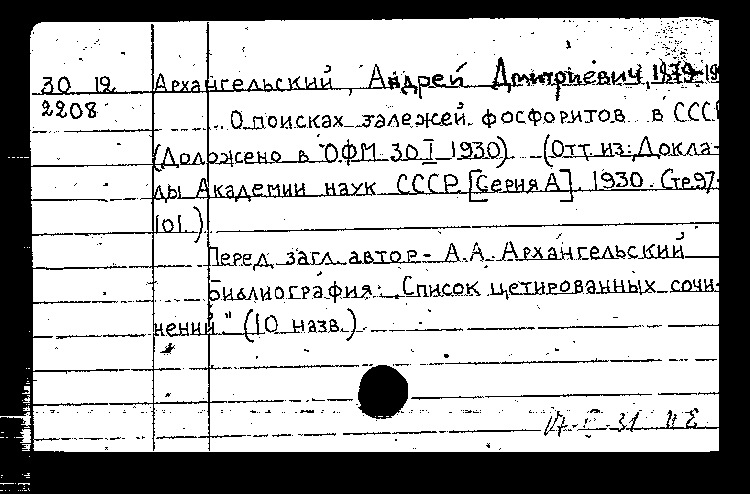 30 12 Архангельский, Андрей Дмитриевич, 1879-19
2208
О поисках залежей фосфоритов в СССР
(Доложено в ОФМ 30 I 1930) (Отт. из: Докла-
ды Академии наук СССР [Серия А]. 1930. Стр. 97-
101.)
Перед загл. автор - А.А. Архангельский
Библиография: "Список цетированных сочи-
нений." (10 назв.)
17-II-31 НЕ